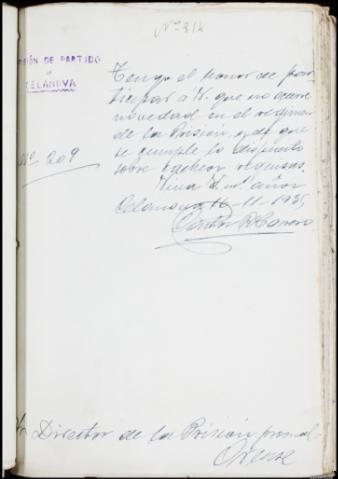 Nº 214
SIÓN DE PARTIDO
CELANOVA
Nº 209
Tengo el honor de par-
ticipar á V. que no ocurre
novedad en el regimen
de la Prisión, y de que
se cumple lo dispuesto
sobre
Viva V. m.s años
Celanova 16-11-1935
Director de la Prisión provincial
Orense